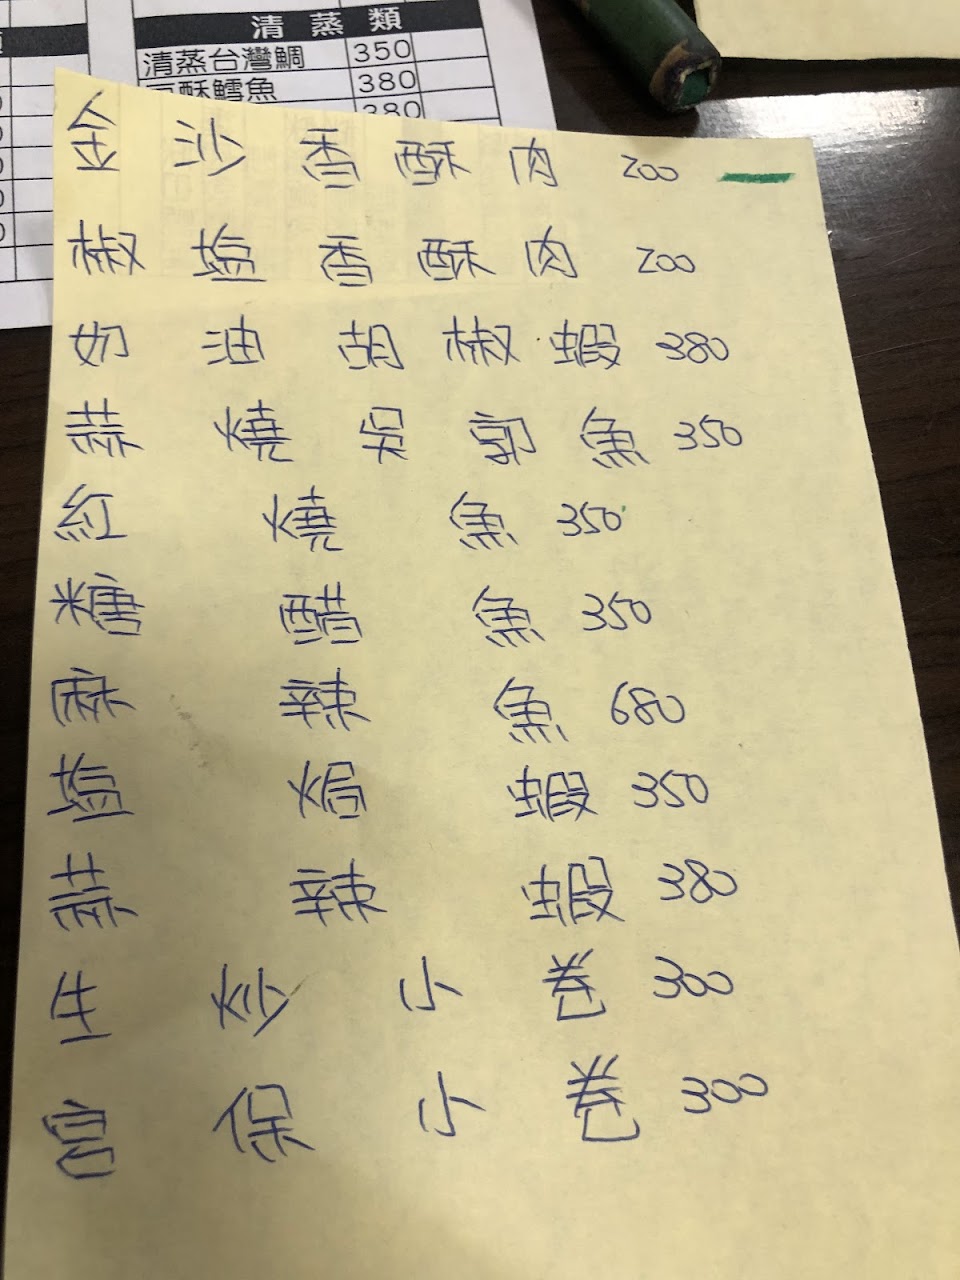 清蒸類
清蒸台灣鯛 350
酥鱈魚 380
380
金沙香酥肉 200
椒塩香酥肉 200
奶油胡椒蝦 380
蒜燒吳郭魚 350
紅燒魚 350
糖醋魚 350
麻辣魚 680
塩焗蝦 350
蒜辣蝦 380
生炒小卷 300
宮保小卷 300